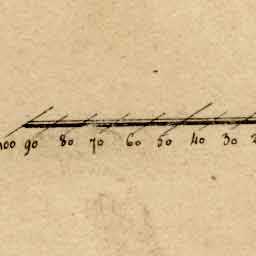 100 90 80 70 60 50 40 30